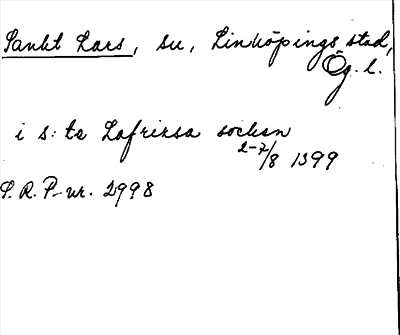 Sankt Lars, sn, Linköpings stad,
Ög. l.
i s: te Lafrinsa sochen
2-7/8 1399
S.R.P-nr. 2998